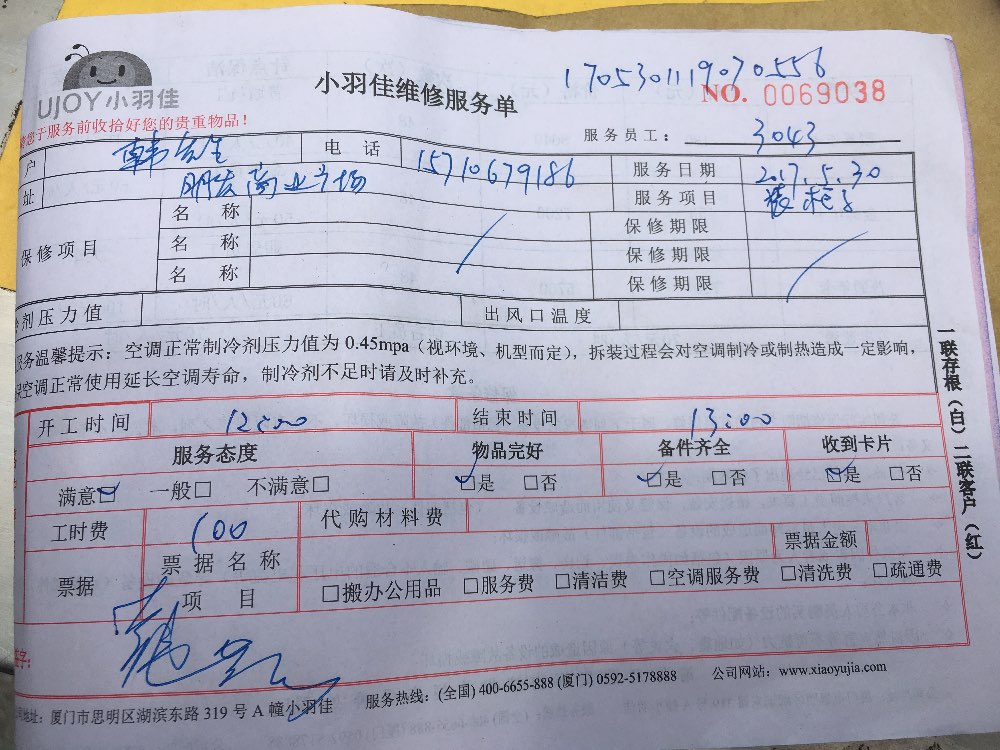 UJOY小羽佳
小羽佳维修服务单
1705301119070556
NO. 0069038
您于服务前收拾好您的贵重物品！
服务员工： 3043
户 韩先生 电话 15710679186 服务日期 2017.5.30
址 朋宏商业广场 服务项目 装柜子
保修项目 名称 保修期限
名称 保修期限
名称 保修期限
剂压力值 出风口温度
服务温馨提示：空调正常制冷剂压力值为 0.45mpa（视环境、机型而定），拆装过程会对空调制冷或制热造成一定影响，
空调正常使用延长空调寿命，制冷剂不足时请及时补充。
开工时间 12:00 结束时间 13:00
服务态度 物品完好 备件齐全 收到卡片
满意☑ 一般□ 不满意□ ☑是 □否 ☑是 □否 ☑是 □否
工时费 100 代购材料费
票据 票据名称 票据金额
项目 □搬办公用品 □服务费 □清洁费 □空调服务费 □清洗费 □疏通费
签字：
地址：厦门市思明区湖滨东路 319 号 A 幢小羽佳 服务热线：(全国) 400-6655-888 (厦门) 0592-5178888 公司网站：www.xiaoyujia.com
一联存根（白）二联客户（红）